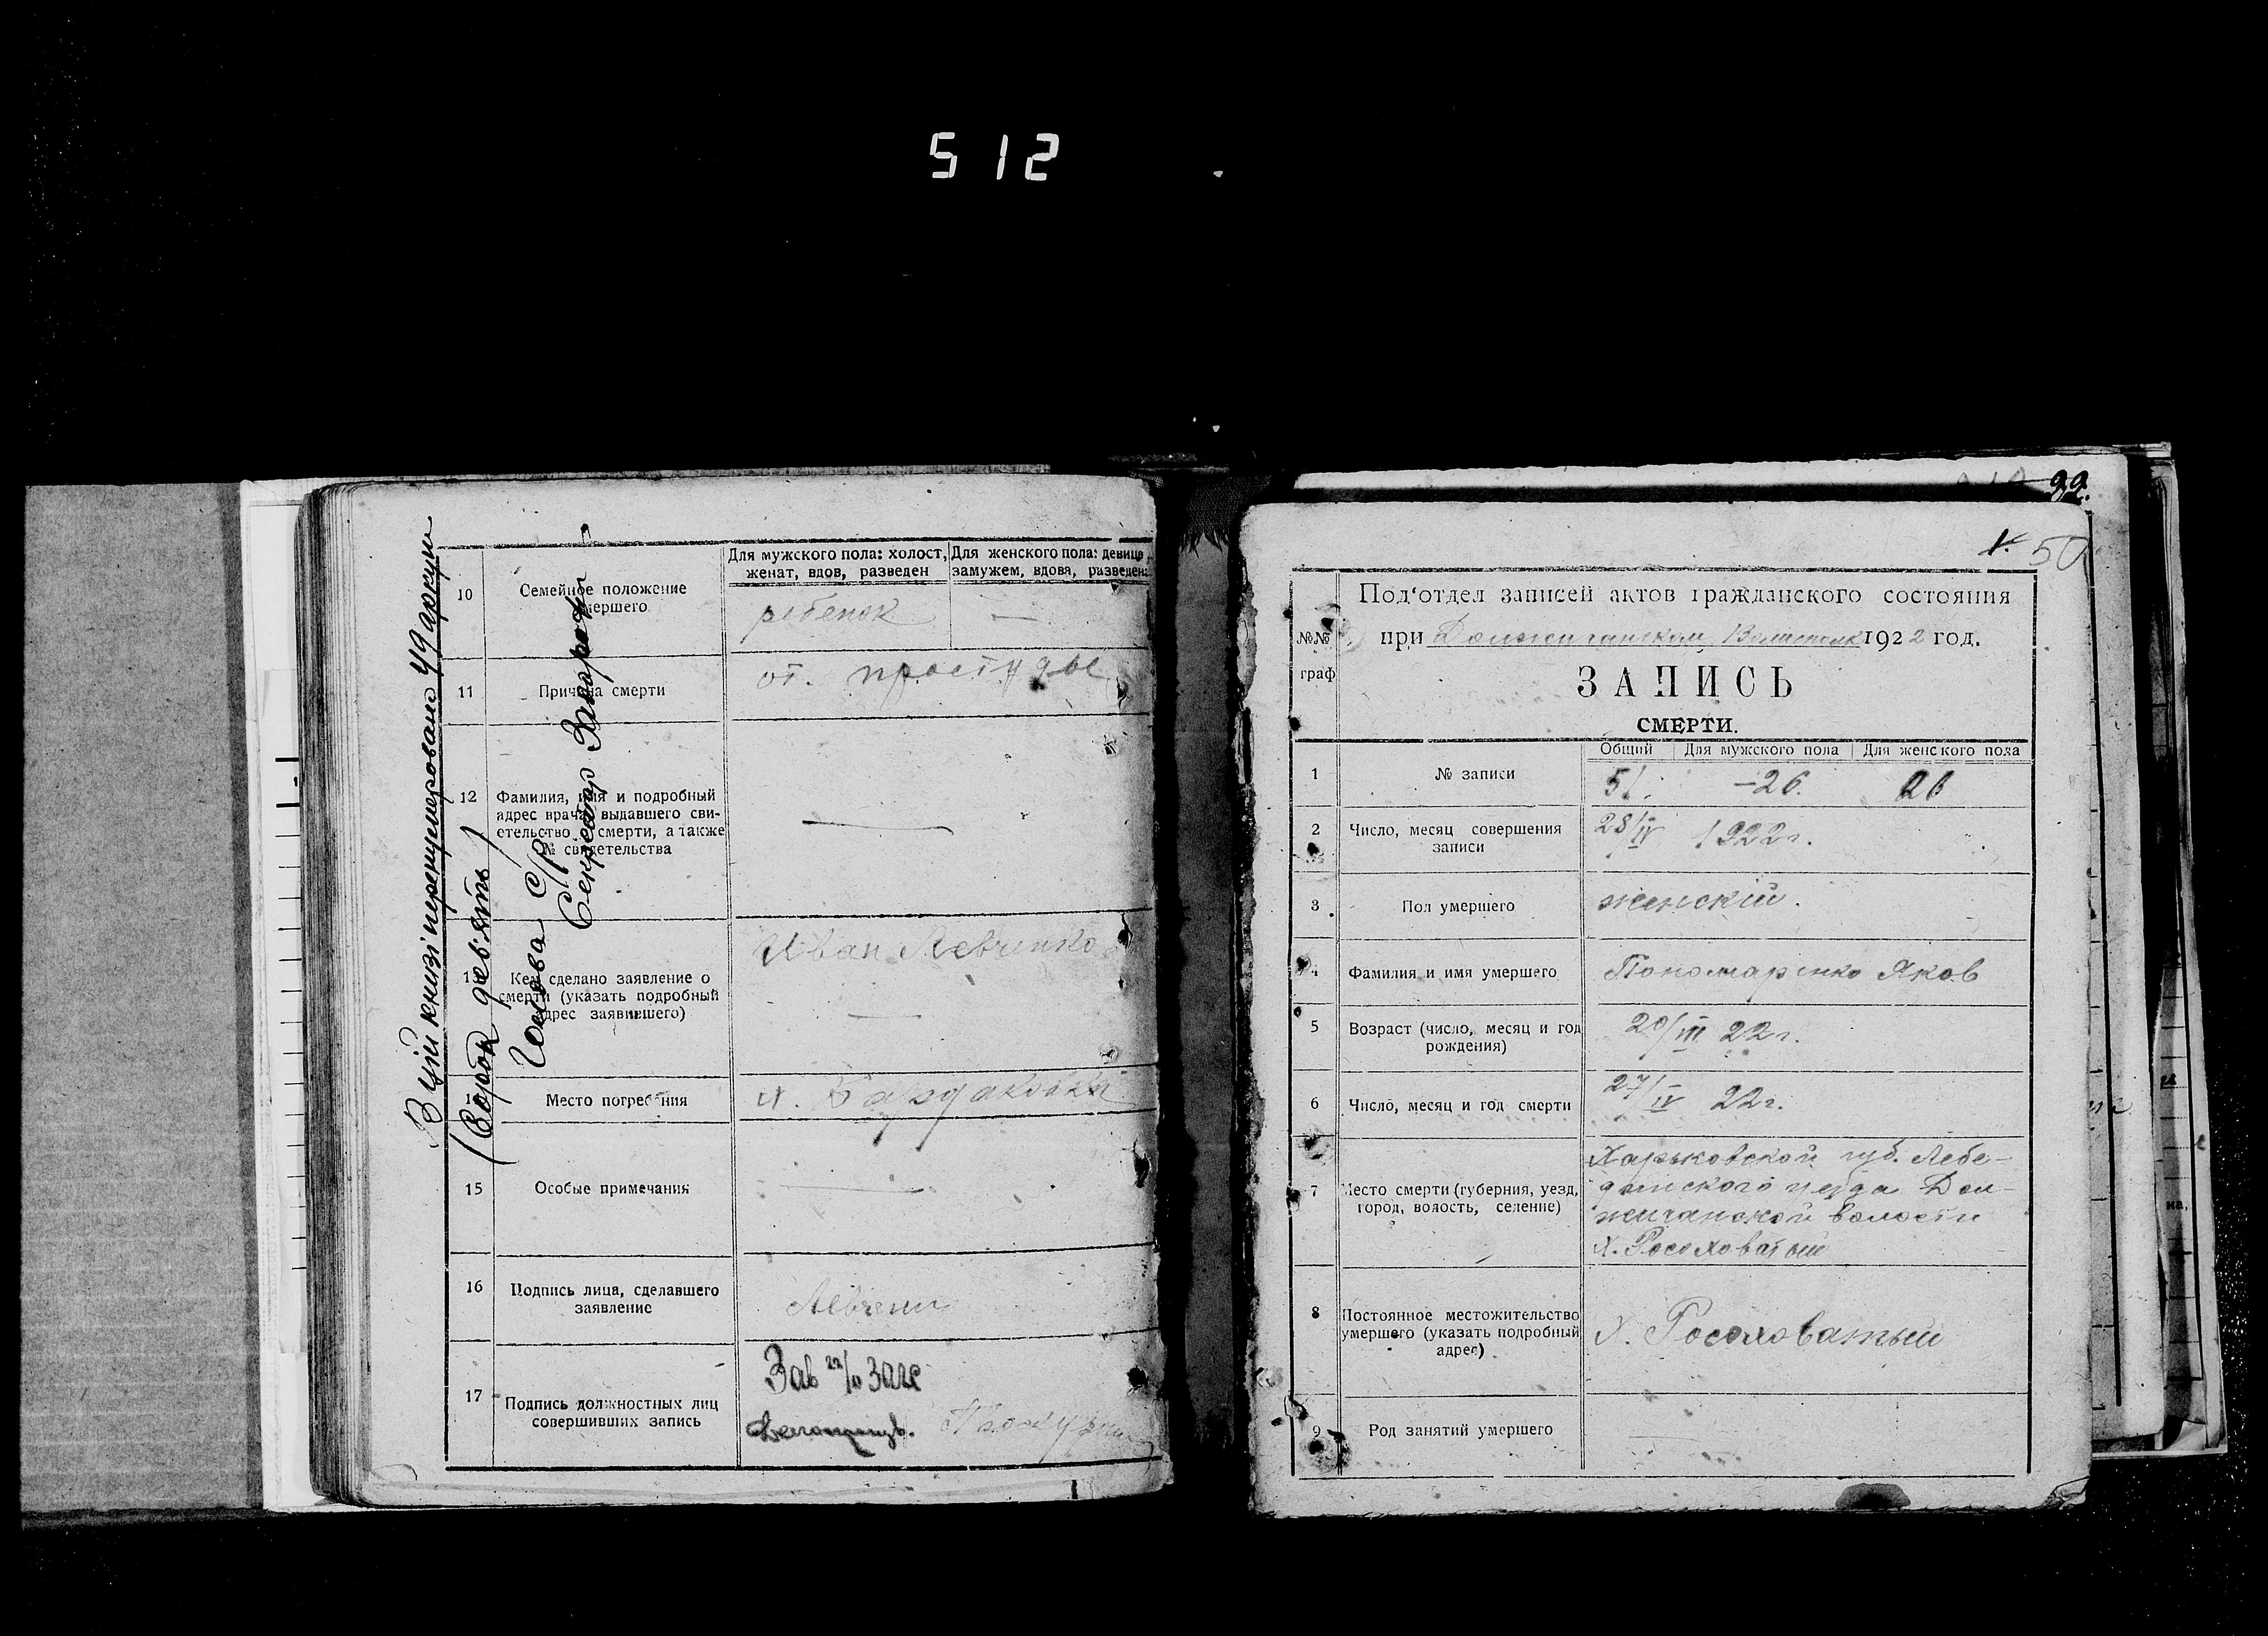 512
В цій книзі перенумеровано 49 аркушів
(Сорок дев'ять)
Голова С/Р
Секретар
10
Семейное положение
умершего
Для мужского пола: холост,
женат, вдов, разведен
Для женского пола: девица,
замужем, вдова, разведена
ребенок
—
11
Причина смерти
от. простуды
12
Фамилия, имя и подробный
адрес врача, выдавшего сви-
етельство о смерти, а также
№ свидетельства
—
13
Кем сделано заявление о
смерти (указать подробный
адрес заявившего)
Иван Левченко
—
14
Место погребения
х.
15
Особые примечания
—
16
Подпись лица, сделавшего
заявление
17
Подпись должностных лиц
совершивших запись
Зав п/о Загс
99.
1.
50
Под'отдел записей актов гражданского состояния
№№
граф
при Должичанском 1922 год.
ЗАПИСЬ
СМЕРТИ.
Общий
Для мужского пола
Для женского пола
1
№ записи
51.
-26.
26
2
Число, месяц совершения
записи
28/IV 1922г.
3
Пол умершего
женский.
4
Фамилия и имя умершего
Пономаренко Яков
5
Возраст (число, месяц и год
рождения)
20/III 22г.
6
Число, месяц и год смерти
27/IV 22г.
7
Место смерти (губерния, уезд,
город, волость, селение)
Харьковской губ. Лебе-
динского уезда Дол-
жичанской волости
х. Росоховатый
8
Постоянное местожительство
умершего (указать подробный
адрес)
х. Росоховатый
9
Род занятий умершего